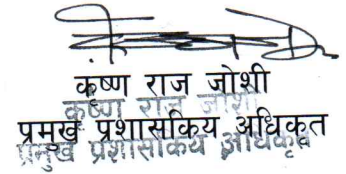 कृष्ण राज जोशी
कृष्ण राज जोशी
प्रमुख प्रशासकिय अधिकृत
प्रमुख प्रशासकिय अधिकृत